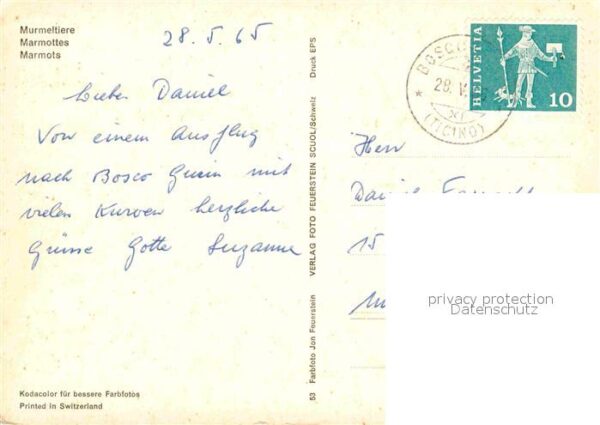 Murmeltiere
Marmottes
Marmots
28.5.65
Lieber Daniel
Von einem Ausflug
nach Bosco Gurin mit
vielen Kurven herzliche
Grüsse Gotte Suzanne
Kodacolor für bessere Farbfotos
Printed in Switzerland
53 Farbfoto Jon Feuerstein VERLAG FOTO FEUERSTEIN SCUOL/Schweiz Druck EPS
BOSCO
28. V.
(TICINO)
HELVETIA
10
Herr
Daniel
15
privacy protection
Datenschutz